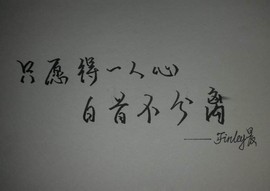 只愿得一人心
白首不分离
——Finley晨